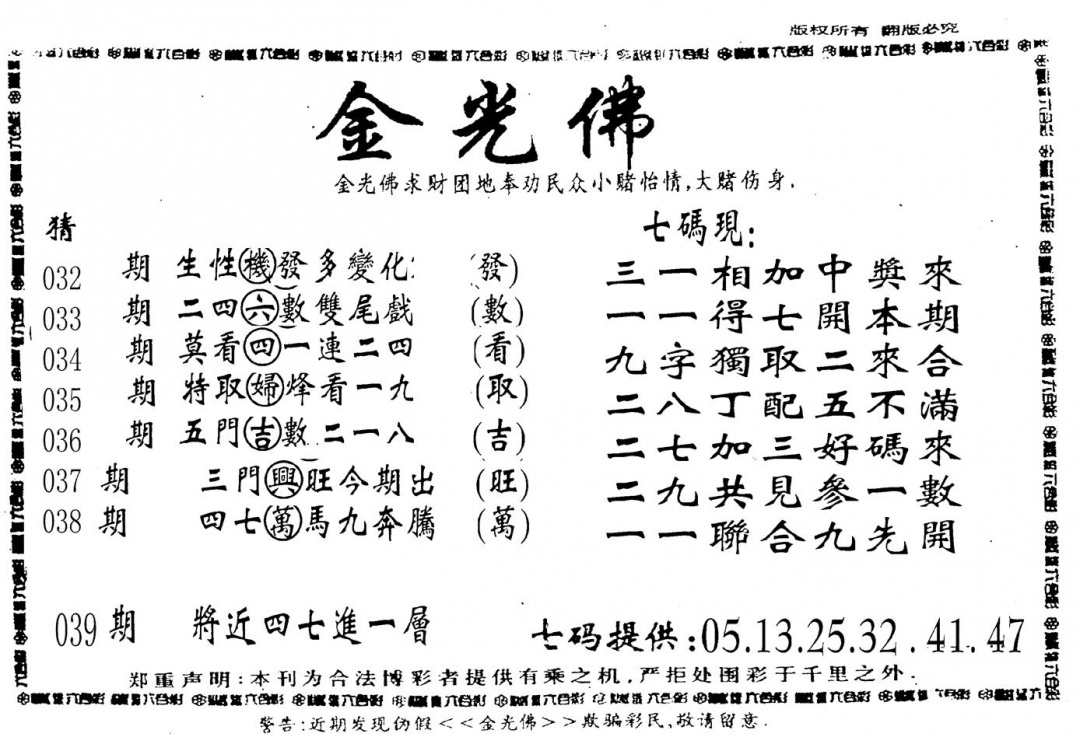 版权所有 翻版必究
金光佛
金光佛求财团地奉劝民众小赌怡情,大赌伤身.
猜
七碼現:
032 期 生性機發多變化 (發) 三一相加中獎來
033 期 二四六數雙尾戲 (數) 一一得七開本期
034 期 莫看四一連二四 (看) 九字獨取二來合
035 期 特取婦烽看一九 (取) 二八丁配五不滿
036 期 五門吉數二一八 (吉) 二七加三好碼來
037 期 三門興旺今期出 (旺) 二九共見參一數
038 期 四七萬馬九奔騰 (萬) 一一聯合九先開
039期 將近四七進一層 七码提供:05.13.25.32.41.47
郑重声明:本刊为合法博彩者提供有乘之机,严拒处围彩于千里之外.
警告:近期发现伪假<<金光佛>>欺骗彩民,敬请留意.